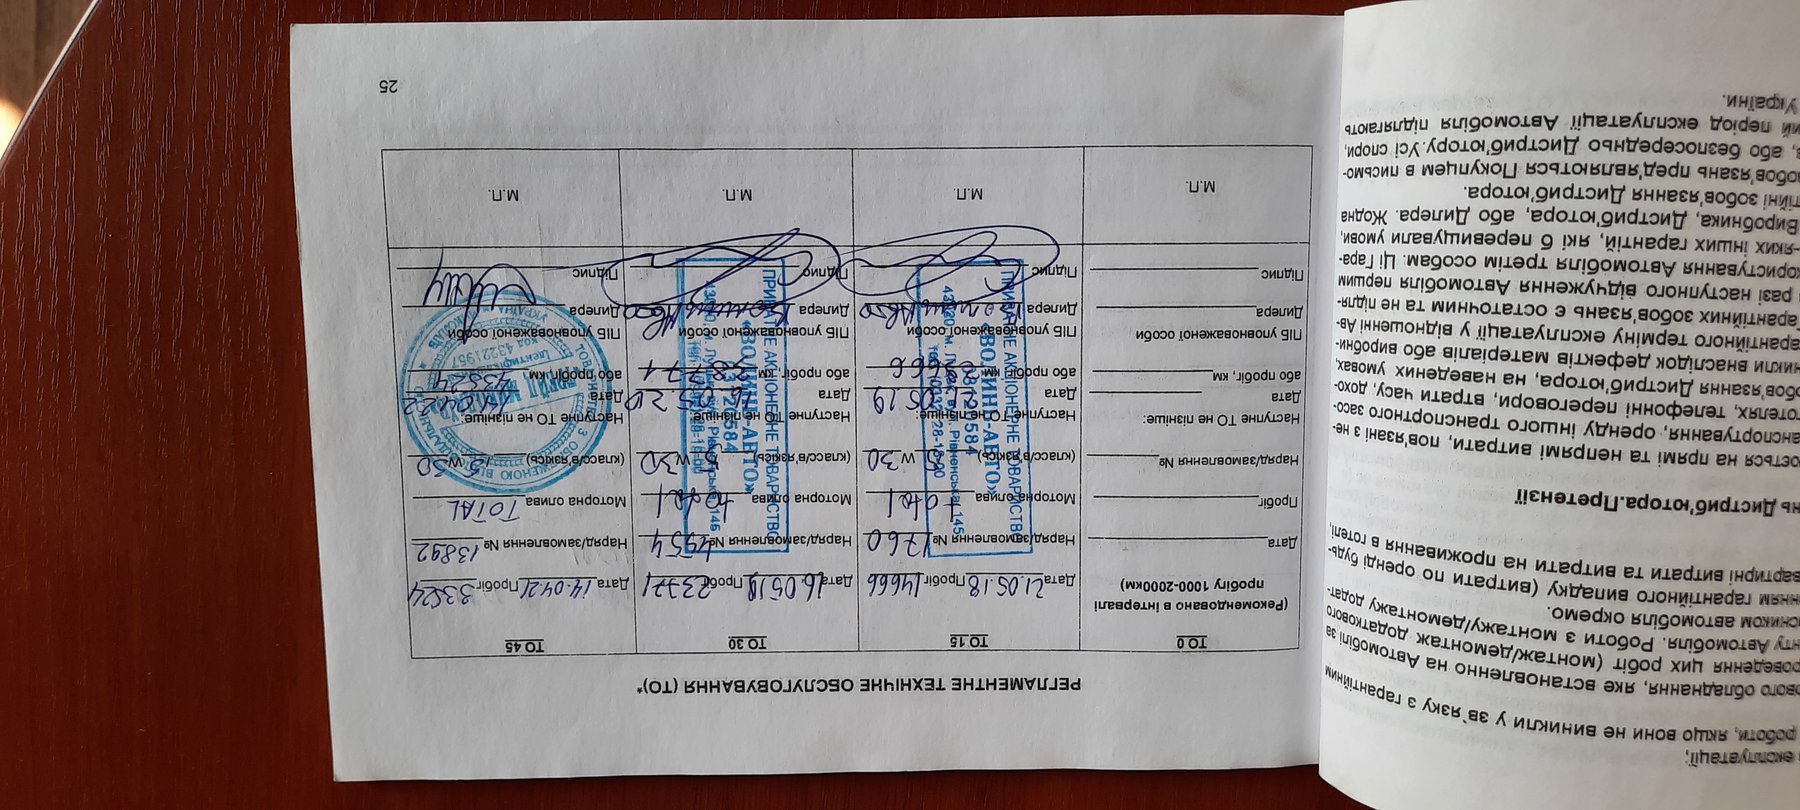 експлуатації;
роботи, якщо вони не виникли у зв`язку з гарантійним
ового обладнання, яке встановленно на Автомобілі за
роведення цих робіт (монтаж/демонтаж додаткового
нту Автомобіля. Роботи з монтажу/демонтажу додат-
сником автомобіля окремо.
нням гарантійного випадку (витрати по оренді будь-
вартирні витрати та витрати на проживання в готелі,
нь Дистриб'ютора.Претензії
ється на прямі та непрямі витрати, пов'язані з не-
анспортування, оренду іншого транспортного засо-
отелях, телефонні переговори, втрати часу, дохо-
обов'язання Дистриб'ютора, на наведених умовах,
никли внаслідок дефектів матеріалів або виробни-
арантійного терміну експлуатації у відношенні Ав-
Гарантійних зобов'язань є остаточним та не підля-
разі наступного відчуження Автомобіля першим
користування Автомобіля третім особам. Ці Гара-
-яких інших гарантій, які б перевищували умови,
Виробника, Дистриб'ютора, або Дилера. Жодна
тійні зобов'язання Дистриб'ютора.
обов'язань пред'являються Покупцем в письмо-
в, або безпосередньо Дистриб'ютору.Усі спори,
ий період експлуатації Автомобіля підлягають
України.
РЕГЛАМЕНТНЕ ТЕХНІЧНЕ ОБСЛУГОВУВАННЯ (ТО)*
ТО 0
(Рекомендовано в інтервалі
пробігу 1000-2000км)
Дата
Пробіг
Наряд/замовлення №
Наступне ТО не пізніше:
Дата
або пробіг, км
ПІБ уповноваженої особи
Дилера
Підпис
М.П.
ТО 15
Дата 21.05.18 Пробіг 14666
Наряд/замовлення № 1760
Моторна олива total
(класс/в'язкість) 5w30
Наступне ТО не пізніше:
Дата 21.05.19
або пробіг, км
ПІБ уповноваженої особи
Дилера
Підпис
М.П.
ПРИВАТНЕ АКЦІОНЕРНЕ ТОВАРИСТВО
«ВОЛИНЬ-АВТО»
ТО 30
Дата 16.05.19 Пробіг 23771
Наряд/замовлення № 4954
Моторна олива total
(класс/в'язкість) 5w30
Наступне ТО не пізніше:
Дата 16.05.20
або пробіг, км 38771
ПІБ уповноваженої особи
Дилера
Підпис
М.П.
ПРИВАТНЕ АКЦІОНЕРНЕ ТОВАРИСТВО
«ВОЛИНЬ-АВТО»
ТО 45
Дата 14.04.21 Пробіг 33524
Наряд/замовлення № 13892
Моторна олива TOTAL
(класс/в'язкість)
Наступне ТО не пізніше:
Дата
або пробіг, км 43524
ПІБ уповноваженої особи
Дилера
Підпис
М.П.
код 43221957
25